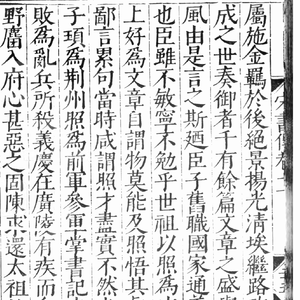 屬施金羈於後絕景揚光清埃繼路
成之世奏御者千有餘篇文章之盛
風由是言之斯廼臣子舊職國家通
也臣雖不敏寧不勉乎世祖以照為
上好為文章自謂物莫能及照悟其
鄙言累句當時咸謂照才盡實不然
子頊為荊州照為前軍參軍掌書記
敗為亂兵所殺義慶在廣陵有疾而
野麏入府心甚惡之固陳求還太祖
宋書傳卷十